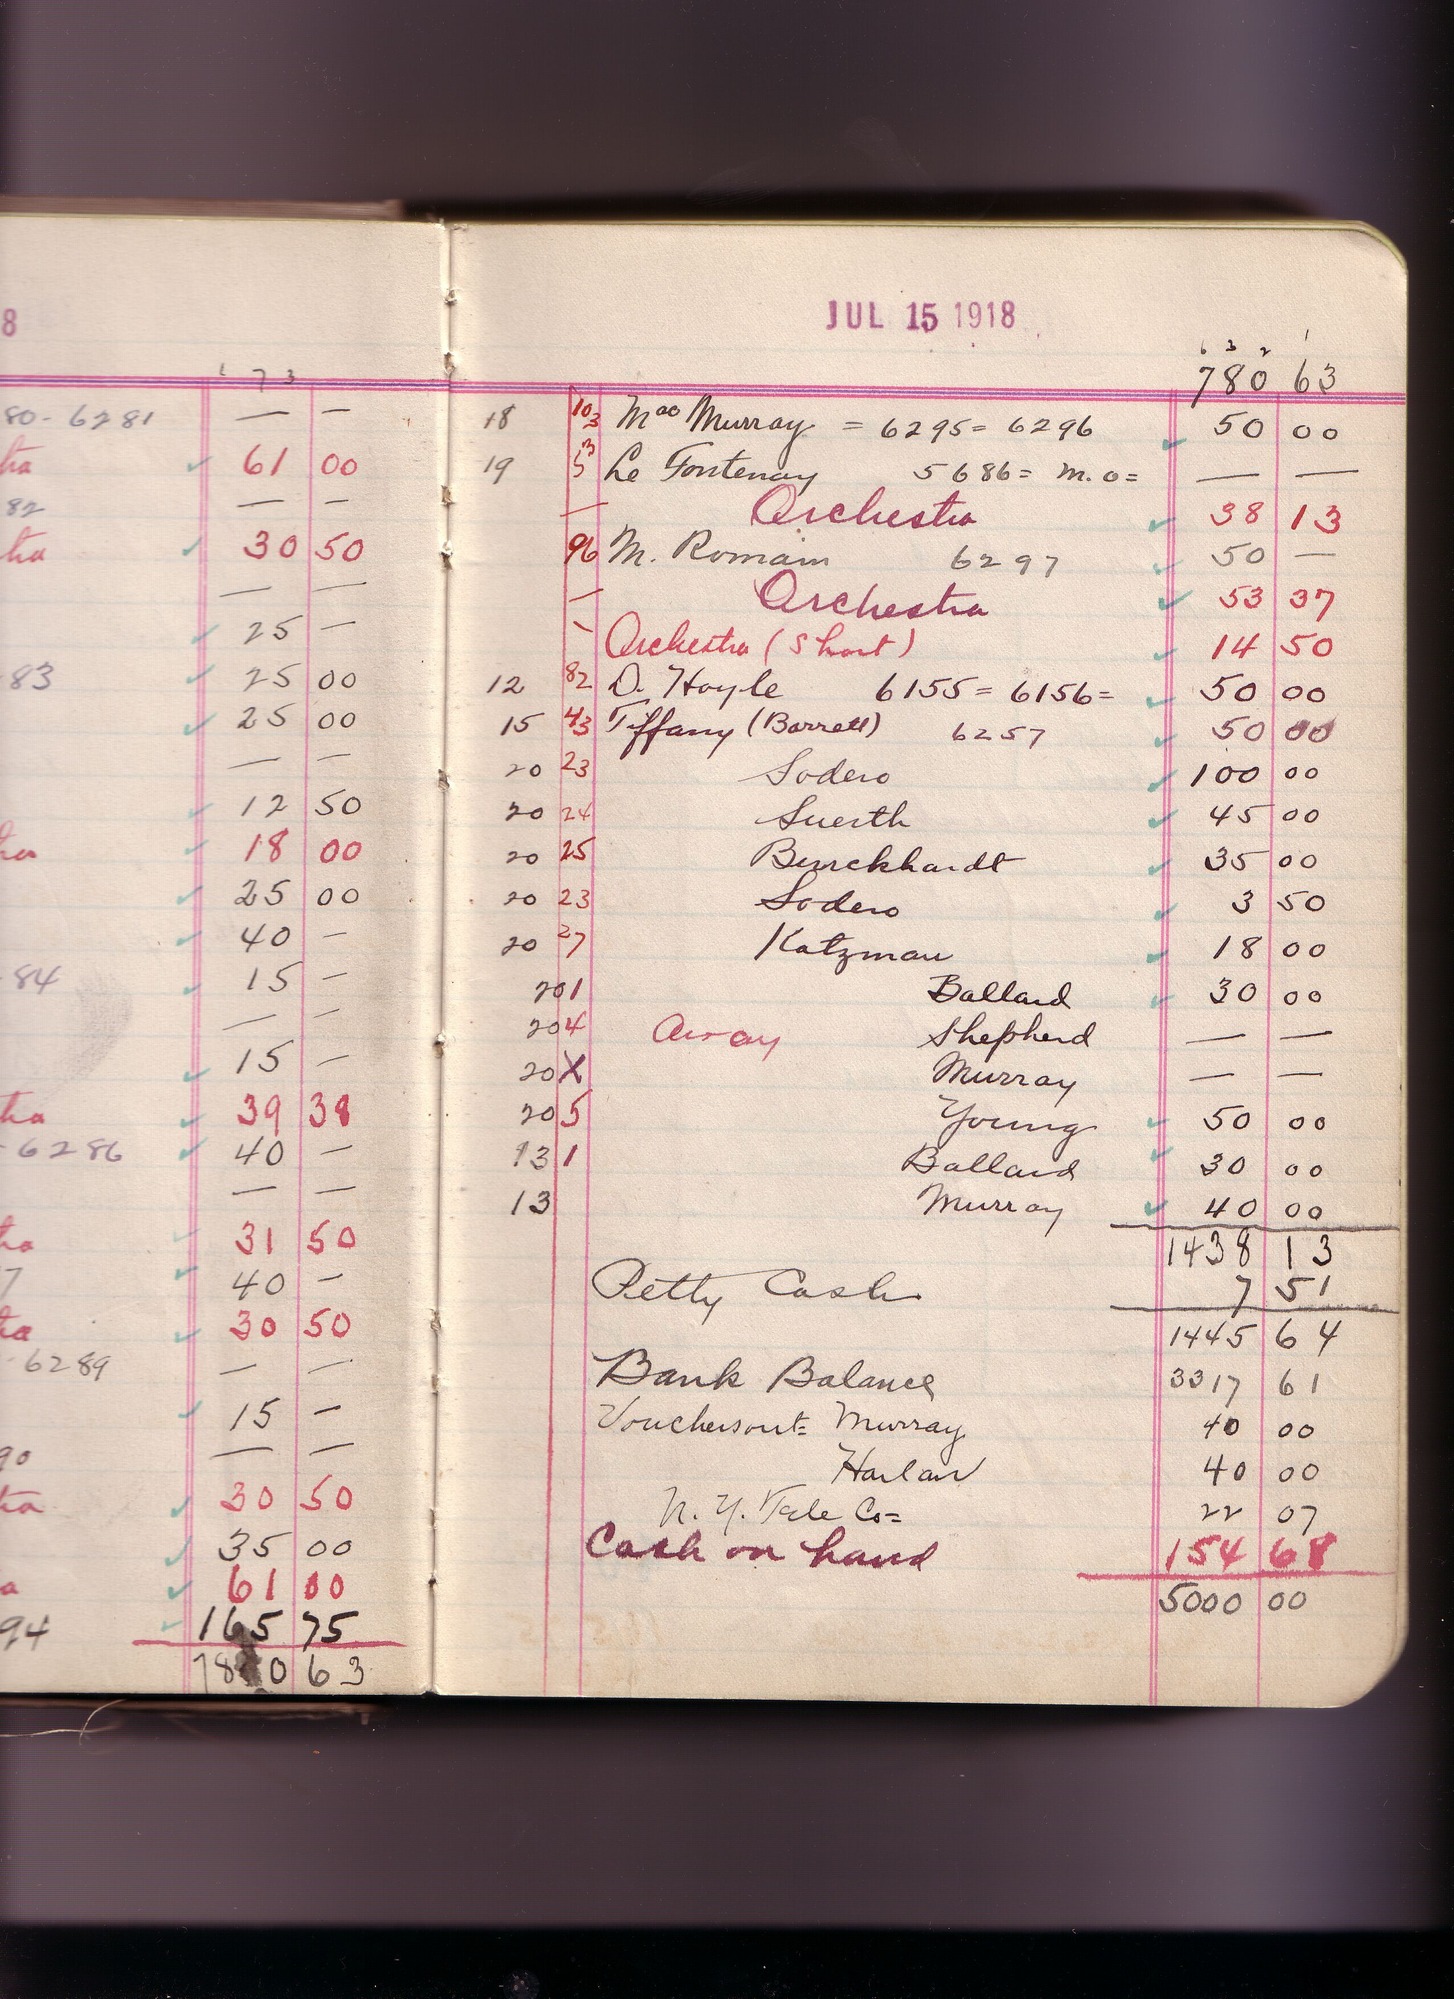 8
1 7 3
80-6281 — —
tra ✓ 61 00
82 — —
tra ✓ 30 50
— —
✓ 25 —
-83 ✓ 25 00
✓ 25 00
— —
✓ 12 50
✓ 18 00
✓ 25 00
✓ 40 —
-84 ✓ 15 —
— —
✓ 15 —
tra ✓ 39 38
-6286 ✓ 40 —
— —
tra ✓ 31 50
7 ✓ 40 —
tra ✓ 30 50
-6289 — —
✓ 15 —
90 — —
tra ✓ 30 50
✓ 35 00
a ✓ 61 00
94 ✓ 165 75
780 63
JUL 15 1918
6 3 2 1
780 63
18 103 Mac Murray = 6295= 6296 ✓ 50 00
19 53 Le Fontenay 5686= m.o= — —
— Orchestra ✓ 38 13
96 M. Romain 6297 ✓ 50 —
— Orchestra ✓ 53 37
— Orchestra (Short) ✓ 14 50
12 82 D. Hoyle 6155= 6156= ✓ 50 00
15 43 Tiffany (Barrett) 6257 ✓ 50 00
20 23 Sodero ✓ 100 00
20 24 Suerth ✓ 45 00
20 25 Burckhardt ✓ 35 00
20 23 Sodero ✓ 3 50
20 27 Katzman ✓ 18 00
20 1 Ballard ✓ 30 00
20 4 Away Shepherd — —
20 X Murray — —
20 5 Young ✓ 50 00
13 1 Ballard ✓ 30 00
13 Murray ✓ 40 00
1438 13
Petty Cash 7 51
1445 64
Bank Balance 3317 61
Vouchersout= Murray 40 00
Harlan 40 00
N. Y. Tele Co= 22 07
Cash on hand 154 68
5000 00